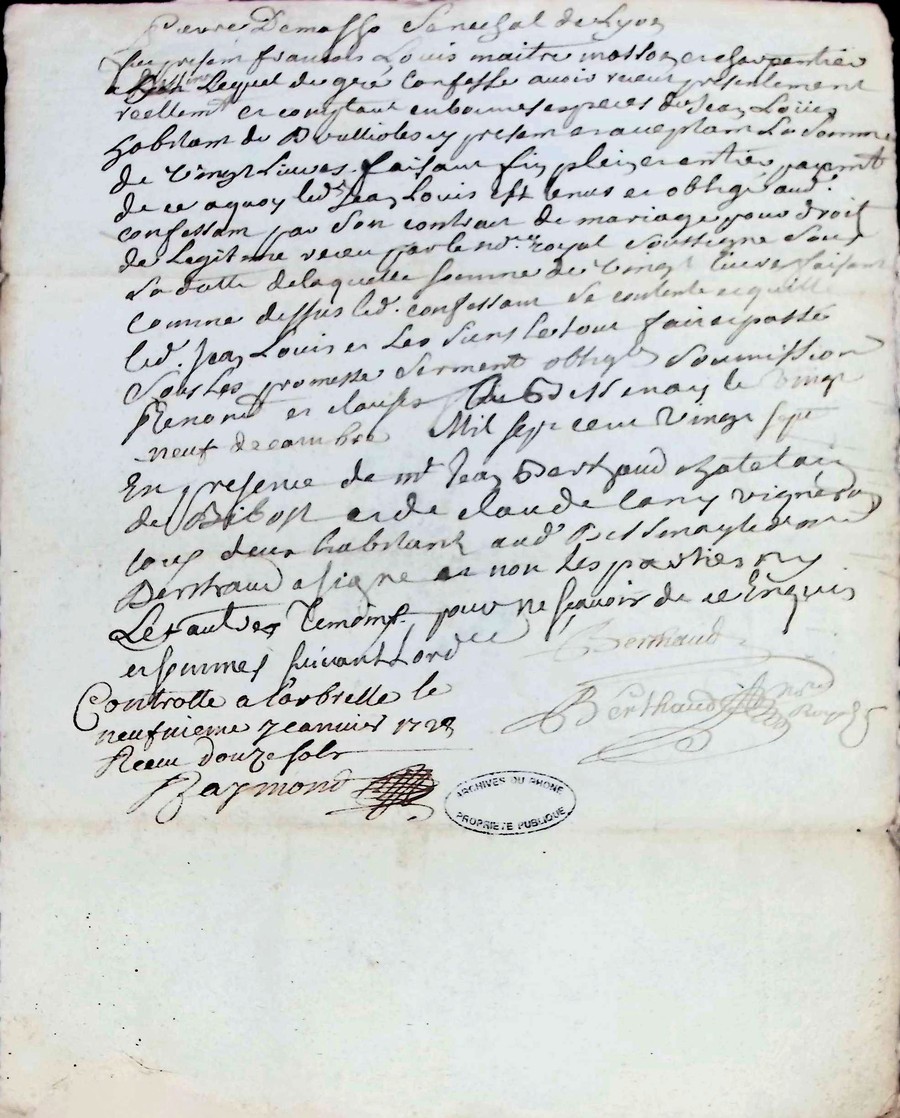 Pierre Demasso Senechal de Lyon
feu presen francois Louis maitre masson et charpentier
a Lequel de gré Confesse avoir receu presentement
reellemt et comptant en bonnes especes de Jean Loüis
habitant de presen et acceptam La somme
de vingt Livres faisant fin plein et entier payemt
de ce a quoy led. Jean Louis est tenus et obligé aud.
confessam par son contrat de mariage pour droit
de Legitime receu par le no.re royal soussigne sous
sa datte de laquelle somme de vingt livres faisant
comme dessus led. confessant se contente et quitte
led. Jean Louis et Les siens Le tout fait et passé
sous Les promesse serment oblig.on soumission
Renond et clauses Au Bessenay le vingt
neuf decembre Mil sept cent vingt sept
En presence de mt Jean Berthaud chatelain
de Bibost et de claude Cany vigneron
tous deux habitants aud. Bessenay led
Berthaud a signe et non les parties ny
Le autres Temoins pour ne sçavoir de ce Enquis
et sommes suivant Lord.ce
Berthaud
Controlle a larbrelle le
neufvieme Jeanvier 1728
Receu douze sols
Berthaud no.re Royal
Raymond
ARCHIVES DU RHONE
PROPRIETE PUBLIQUE